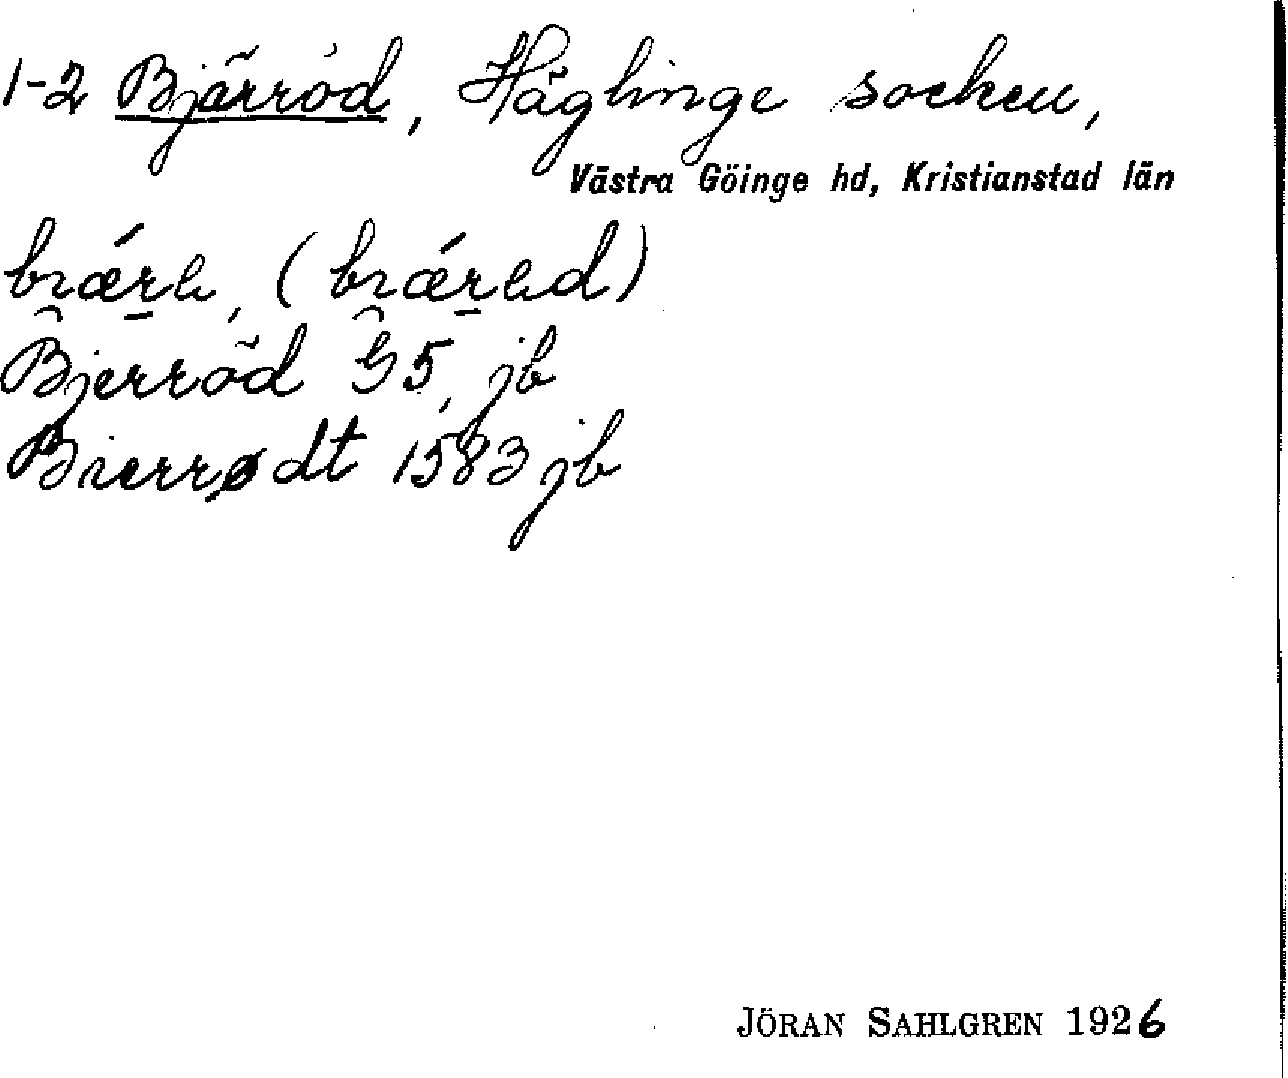 1-2 Bjärröd, Häglinge socken,
Västra Göinge hd, Kristianstad län
Bjerröd G5, jb
Bierrødt 1583 jb
JÖRAN SAHLGREN 1926